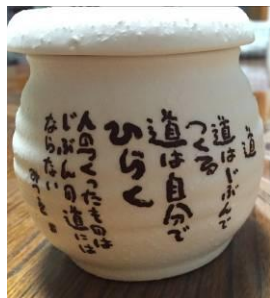 道
道はじぶんで
つくる
道は自分で
ひらく
人のつくったものは
じぶんの道には
ならない
みつを